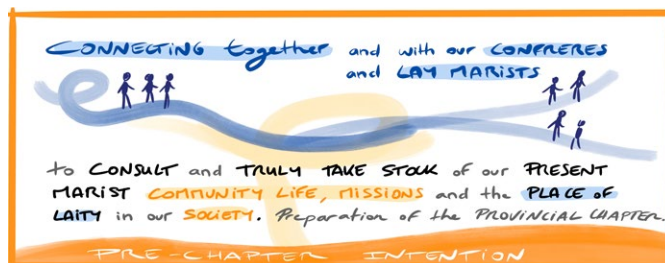 CONNECTING together and with our CONFRERES
and LAY MARISTS
to CONSULT and TRULY TAKE STOCK of our PRESENT
MARIST COMMUNITY LIFE, MISSIONS and the PLACE OF
LAITY in our SOCIETY. Preparation of the PROVINCIAL CHAPTER.
PRE-CHAPTER INTENTION